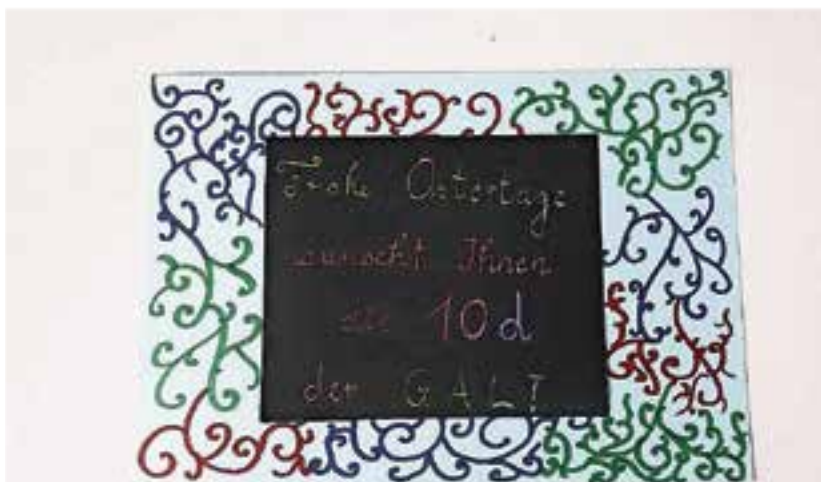 Frohe Ostertage
wünscht Ihnen
die 10d
der GAL!